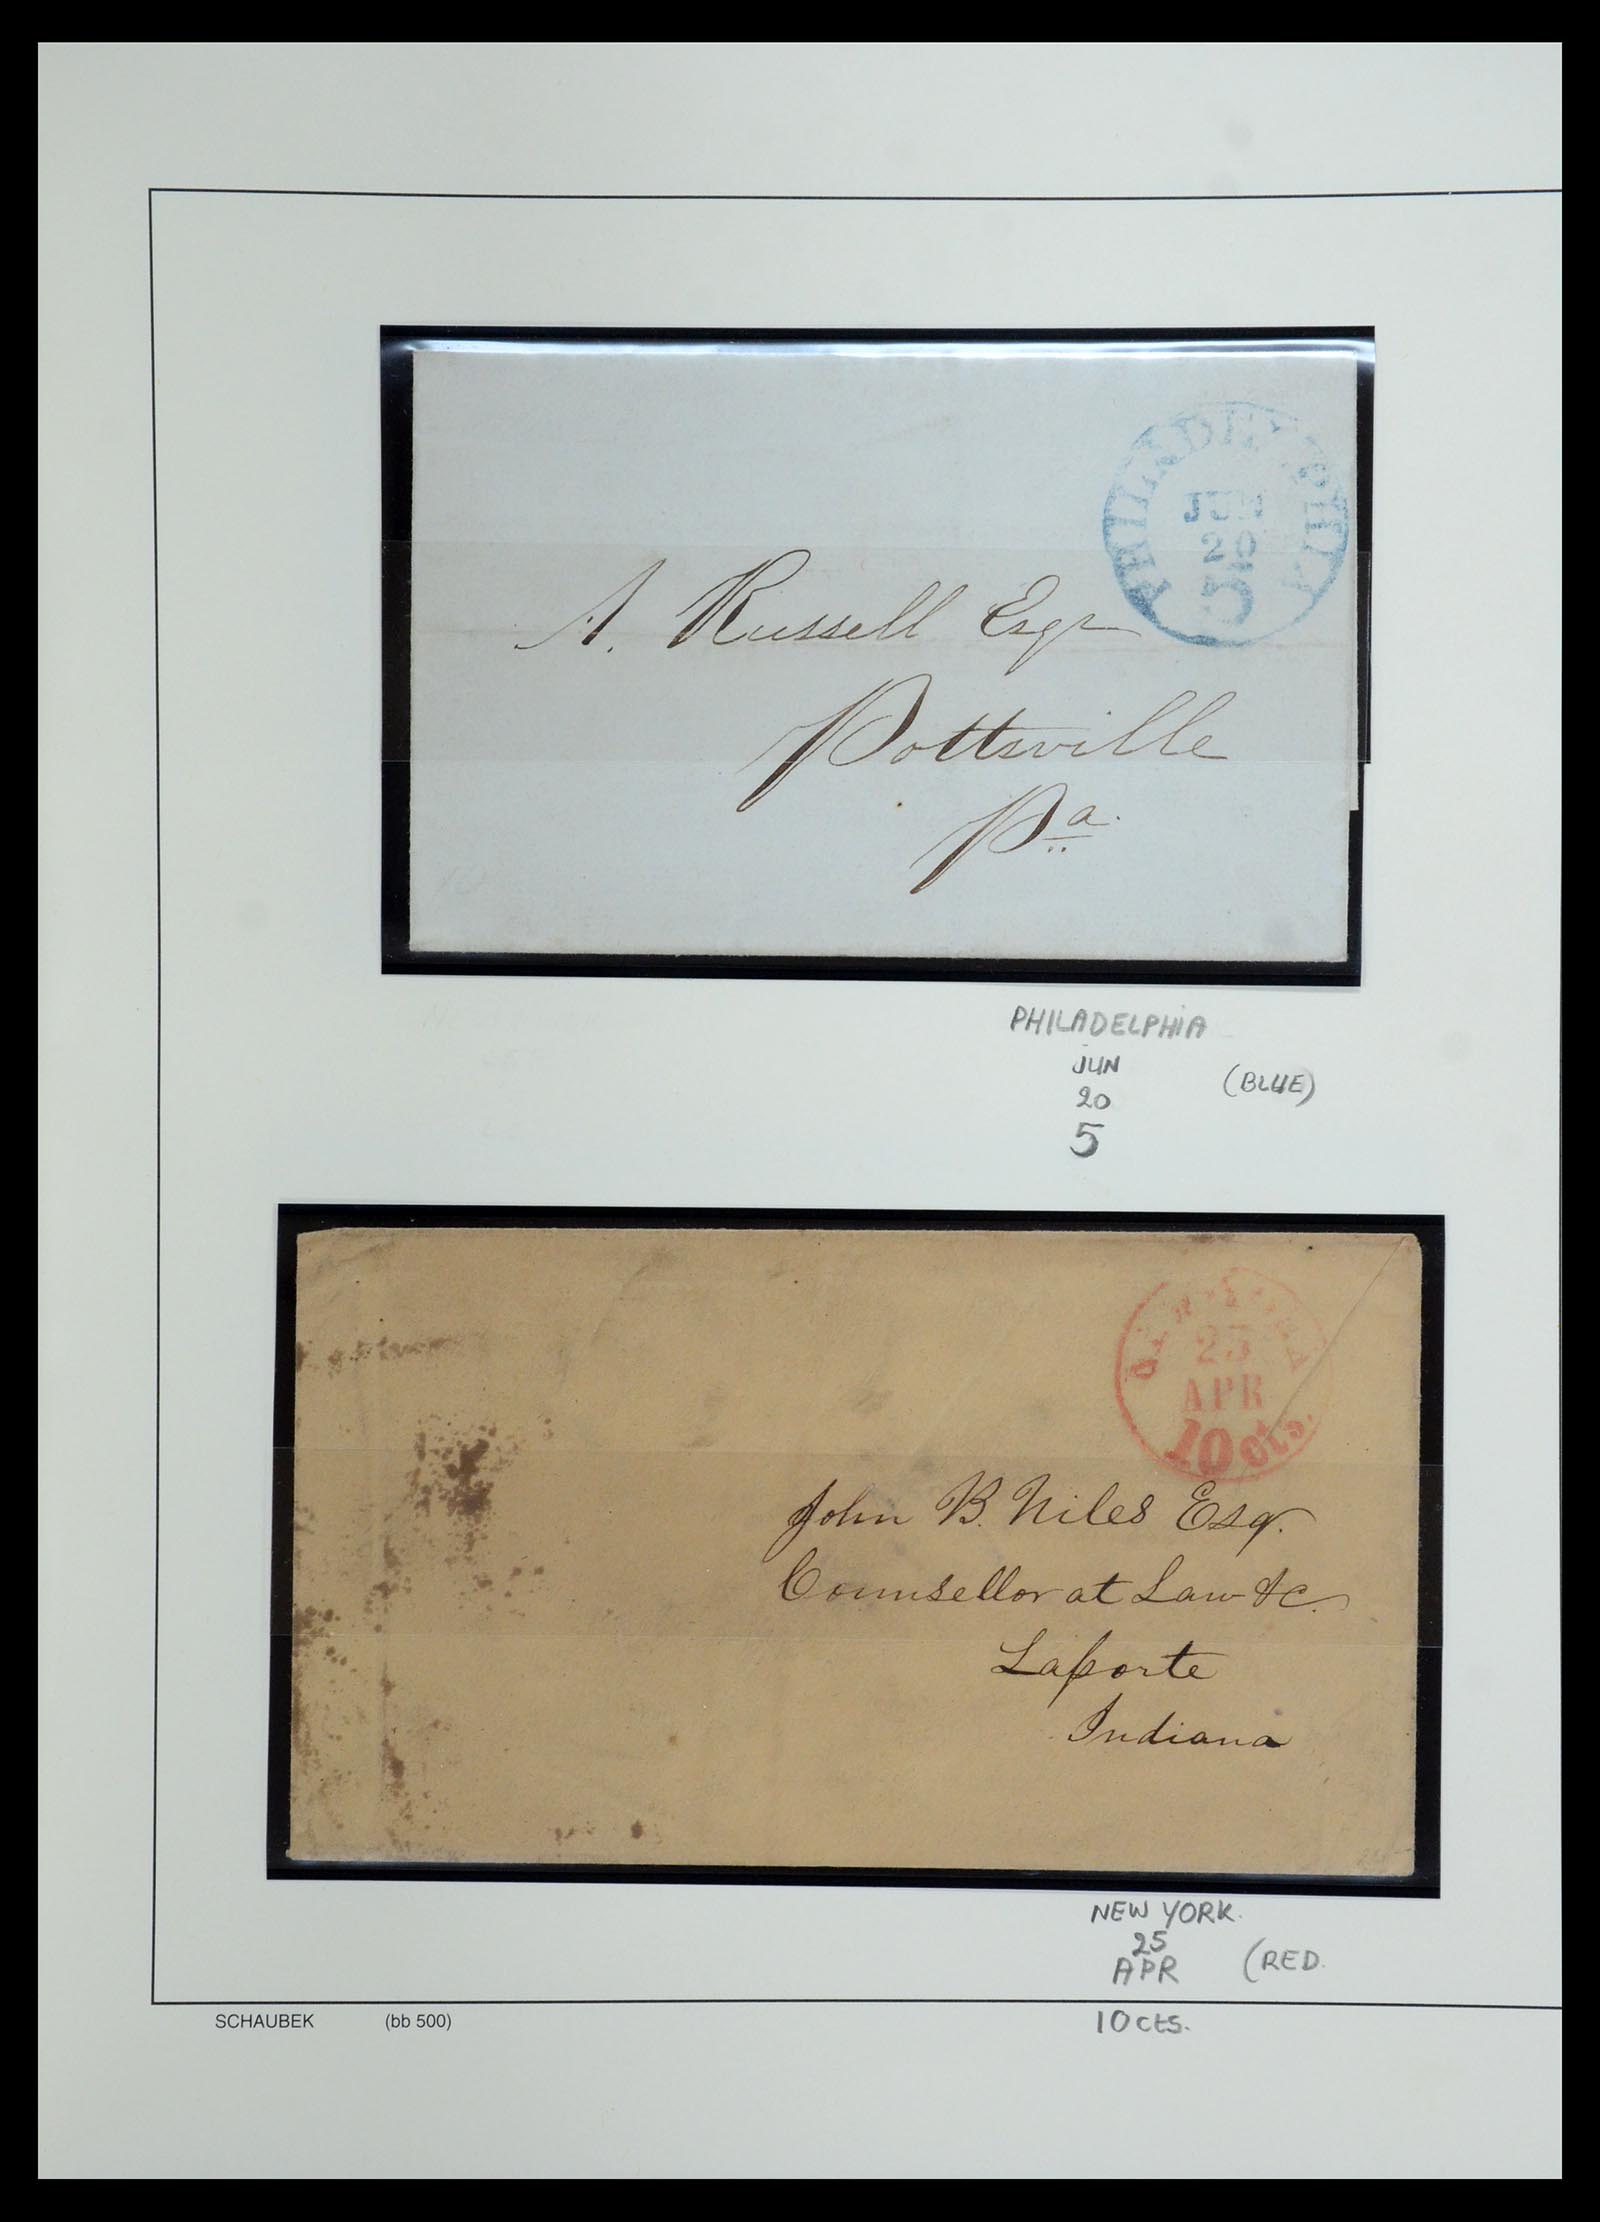 PHILADELPHIA
JUN
20
5
A. Russell Esqr
Pottsville
Pa.
PHILADELPHIA
JUN
20
5
(BLUE)
NEW YORK
25
APR
10 cts.
John B. Niles Esq.
Counsellor at Law &c.
Laporte
Indiana
NEW YORK.
25
APR
(RED.
10 cts.
SCHAUBEK (bb 500)